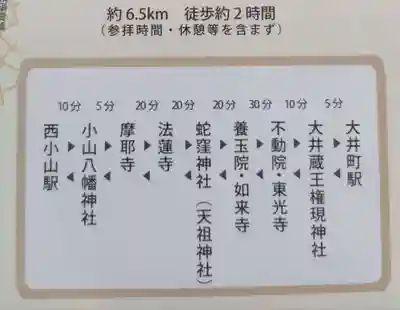 約6.5km 徒歩約2時間
(参拝時間・休憩等を含まず)
10分 5分 20分 20分 20分 30分 10分 5分
大井町駅
大井蔵王権現神社
不動院・東光寺
養玉院・如来寺
蛇窪神社(天祖神社)
法蓮寺
摩耶寺
小山八幡神社
西小山駅